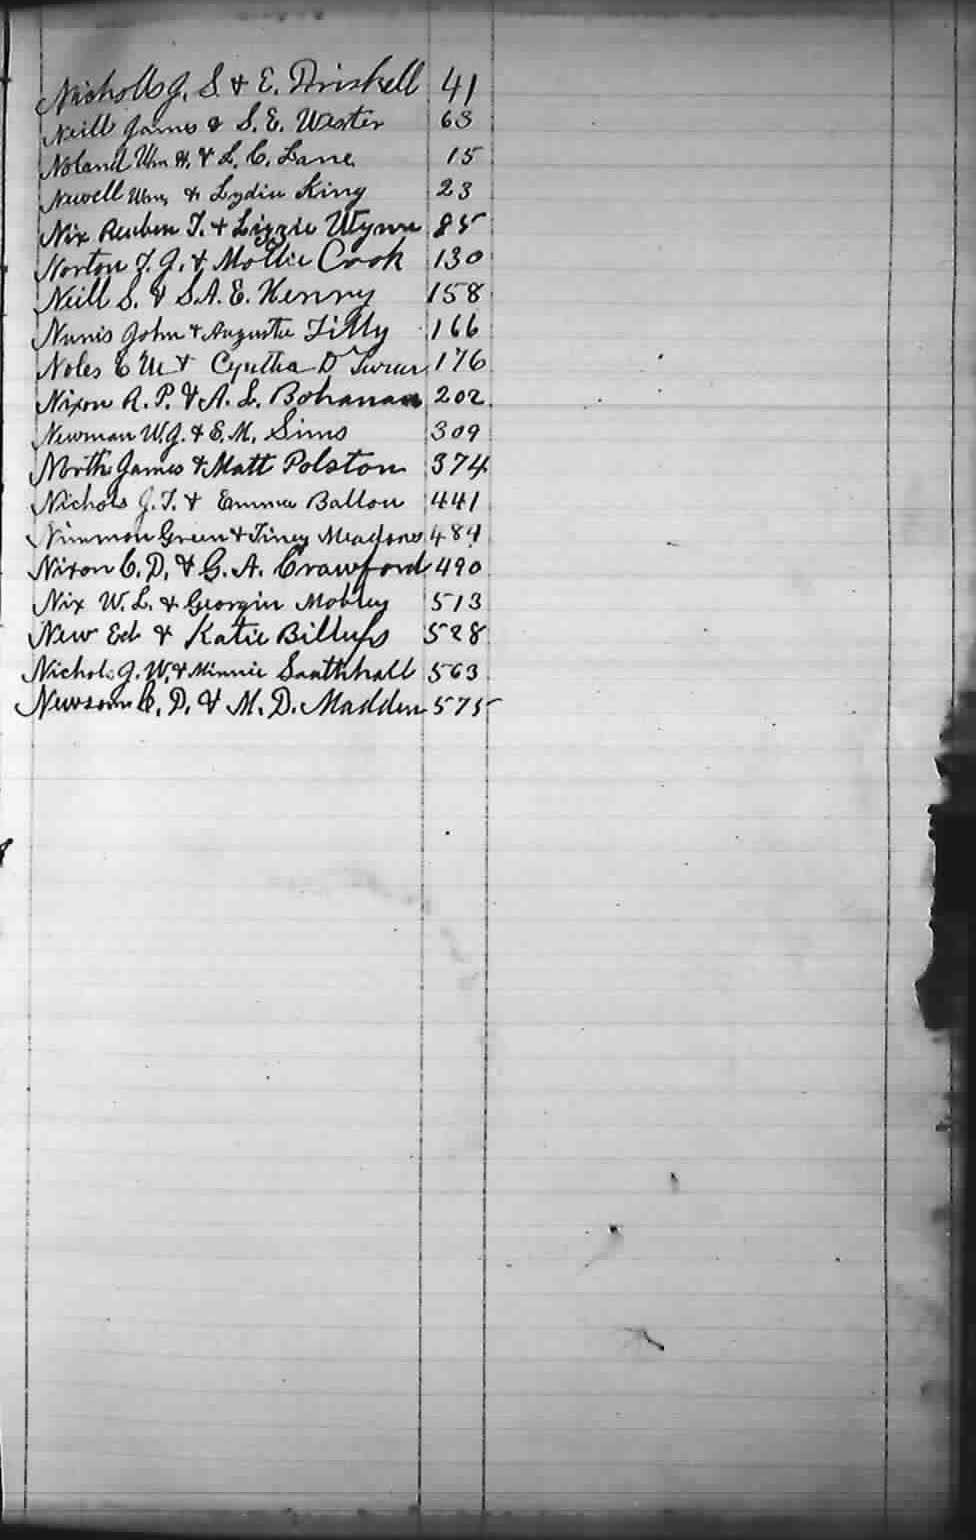 Nicholls J. S. & E. Driskell 41
Neill James & S. E. Wester 63
Noland Wm H. & L. C. Lane 15
Newell Wm, & Lydia King 23
Nix Reuben T. & Lizzie Wynn 85
Norton T. J. & Mollie Cook 130
Neill S. & S. A. E. Henny 158
Nunis John & Augusta Tilly 166
Noles & Cyntha D 176
Nixon R. P. & A. L. Bohanan 202
Newman W. J. & E. M. Sims 309
North James & Matt Polston 374
Nichols J. T. & Emma Ballou 441
Nimmon Green & Tiney Meadows 484
Nixon C. D. & G. A. Crawford 490
Nix W. L. & Georgia Mobley 513
New Ed & Katie Billups 528
Nichols J. W. & Minnie Southhall 563
Newsom C. D. & M. D. Madden 575